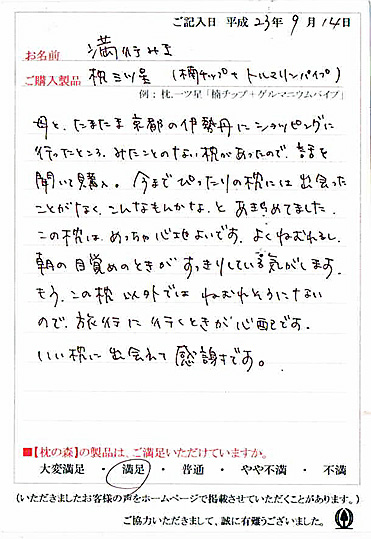 ご記入日 平成 23年 9月 14日
お名前 満行みき
ご購入製品 枕三ツ星 (楠チップ+トルマリンパイプ)
例:枕、一ツ星「楠チップ+ゲルマニウムパイプ」
母と、たまたま京都の伊勢丹にショッピングに
行ったところ、みたことのない枕があったので、話を
聞いて購入。今までぴったりの枕には出会った
ことがなく、こんなもんかな、とあきらめてました。
この枕は、めっちゃ心地よいです。よくねむれるし、
朝の目覚めのときがすっきりしている気がします。
もう、この枕以外ではねむれそうにない
ので、旅行に行くときが心配です。
いい枕に出会えて感謝です。
■【枕の森】の製品は、ご満足いただけていますか。
大変満足 ・ 満足 ・ 普通 ・ やや不満 ・ 不満
(いただきましたお客様の声をホームページで掲載させていただくことがあります。)
ご協力いただきまして、誠に有難うございました。